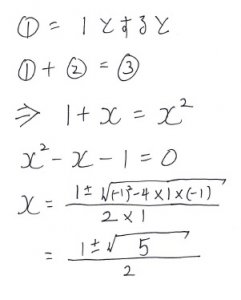 ① = 1とすると
① + ② = ③
⇒ 1 + x = x²
x² - x - 1 = 0
x = \frac{1 ± \sqrt{(-1)² - 4 × 1 × (-1)}}{2 × 1}
= \frac{1 ± \sqrt{5}}{2}